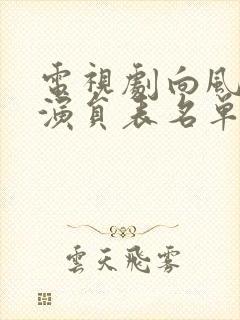 電視劇向風
演員表名單
雲天飛霧